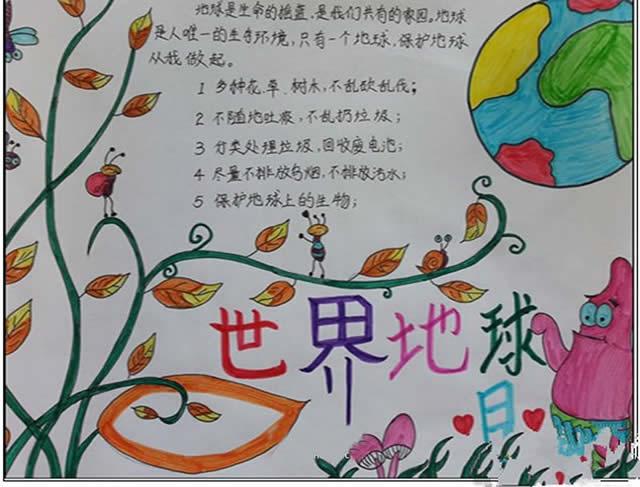 地球是生命的摇篮，是我们共有的家园。地球
是人唯一的生存环境，只有一个地球，保护地球
从我做起。
1 多种花、草、树木，不乱砍乱伐；
2 不随地吐痰，不乱扔垃圾；
3 分类处理垃圾，回收废电池；
4 尽量不排放乌烟，不排放污水；
5 保护地球上的生物；
世界地球
日